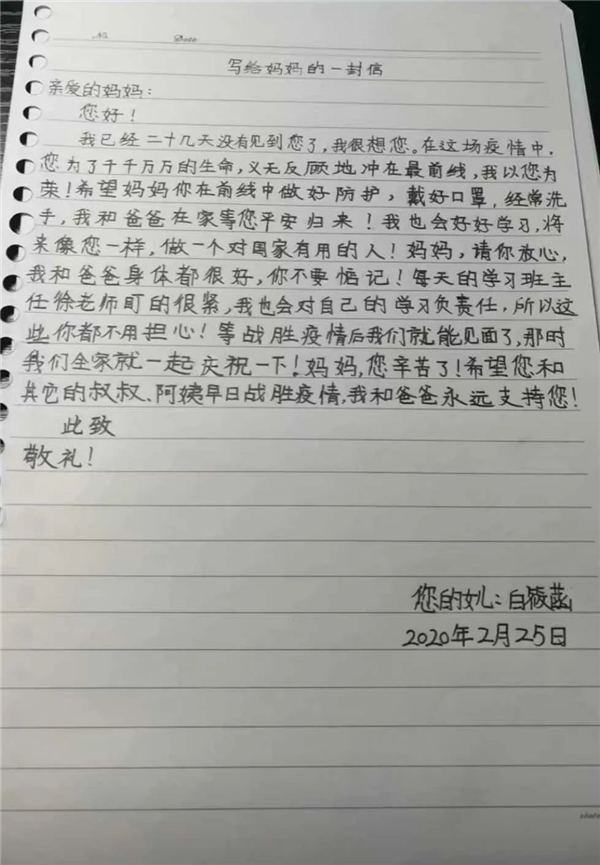 No.
Date
写给妈妈的一封信
亲爱的妈妈：
您好！
我已经二十几天没有见到您了，我很想您。在这场疫情中，
您为了千千万万的生命，义无反顾地冲在最前线，我以您为
荣！希望妈妈你在前线中做好防护，戴好口罩，经常洗
手，我和爸爸在家等您平安归来！我也会好好学习，将
来像您一样，做一个对国家有用的人！妈妈，请你放心，
我和爸爸身体都很好，你不要惦记！每天的学习班主
任徐老师盯的很紧，我也会对自己的学习负责任，所以这
些你都不用担心！等战胜疫情后我们就能见面了，那时
我们全家就一起庆祝一下！妈妈，您辛苦了！希望您和
其它的叔叔、阿姨早日战胜疫情，我和爸爸永远支持您！
此致
敬礼！
您的女儿：白
2020年2月25日